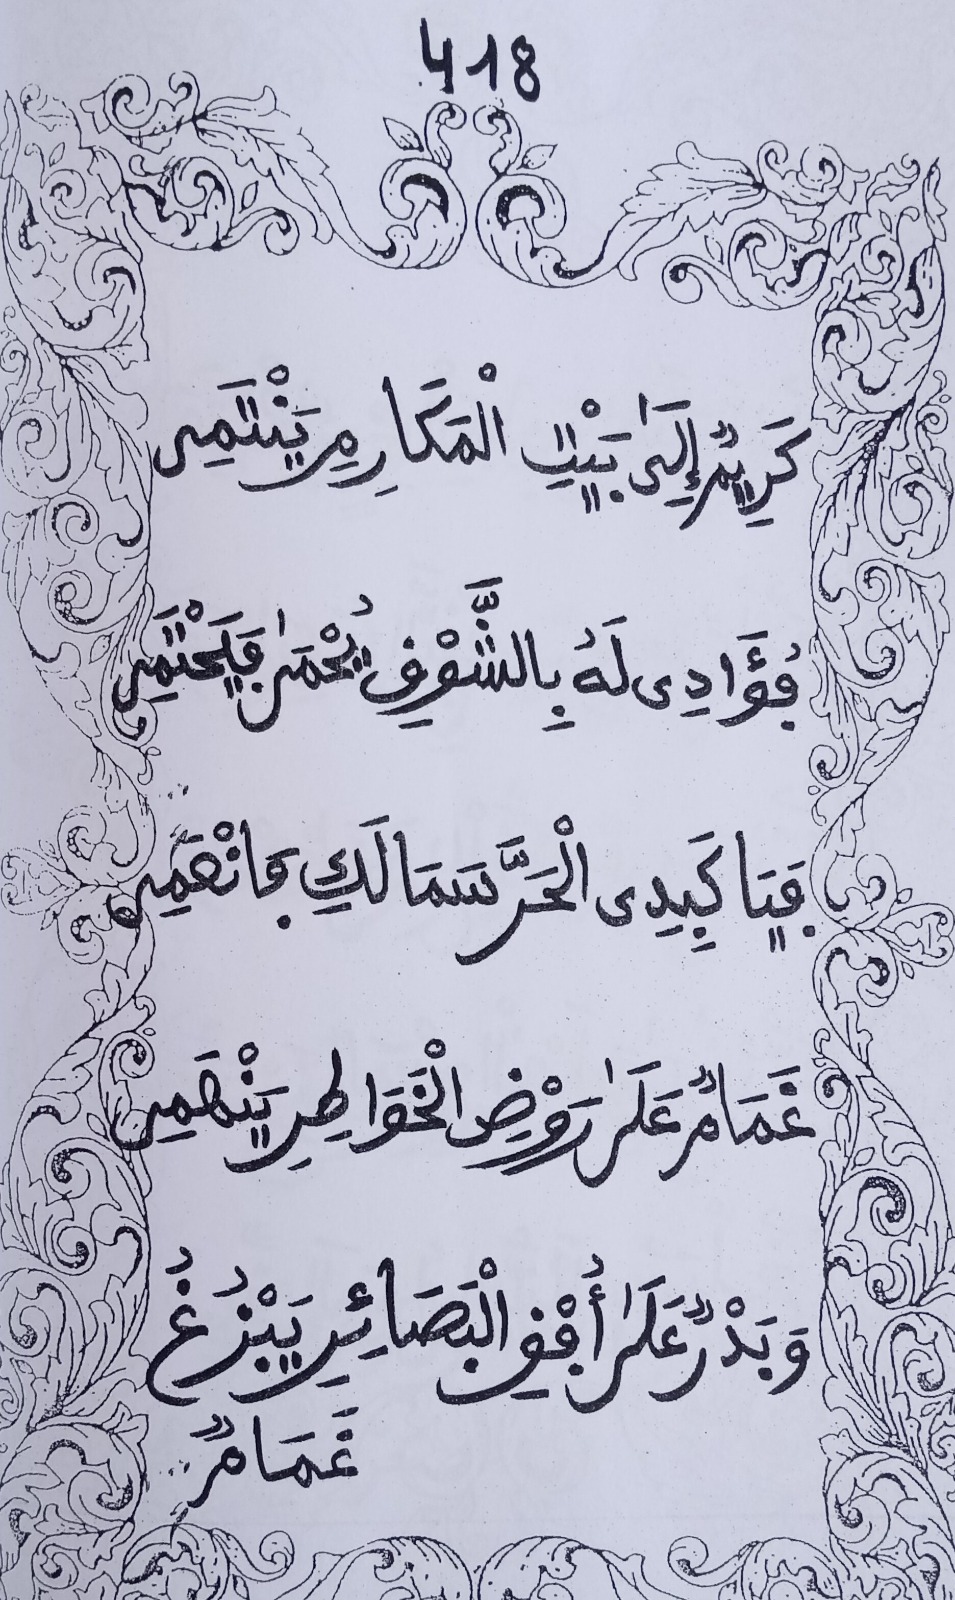 418
كَرِيمٌ إِلَىٰ بَيْتِ الْمَكَارِمِ يَنْتَمِي
فُؤَادِي لَهُ بِالشَّوْقِ يُحْمَىٰ فَيَحْتَمِي
فَيَا كَبِدِي الْحَرَّى سَمَا لَكِ فَانْعَمِي
غَمَامٌ عَلَىٰ رَوْضِ الْخَوَاطِرِ يَنْهَمِي
وَبَدْرٌ عَلَىٰ أُفْقِ الْبَصَائِرِ يَبْزُغُ
غَمَامٌ